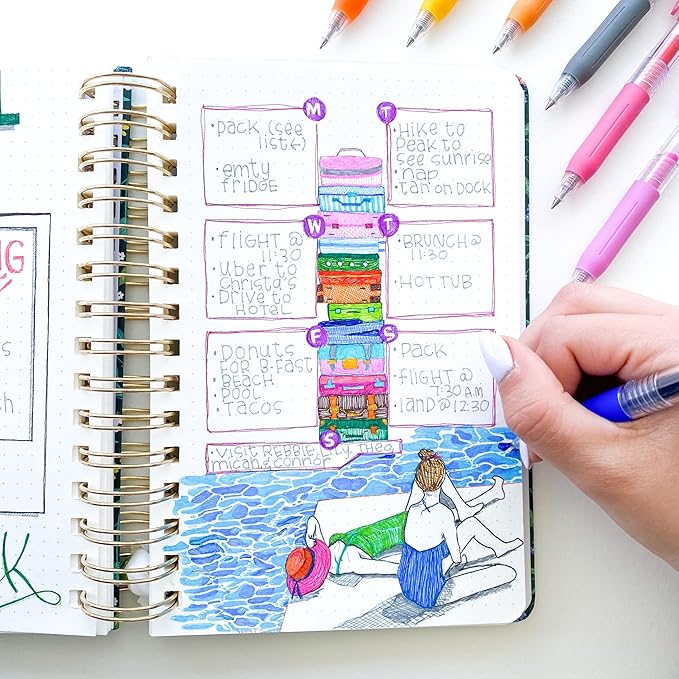 L
NG
s
ch
K
M
·pack (see
list←)
·emty
fridge
T
·Hike to
Peak to
see sunrise
·nap
·tan on dock
W
·flight @
11:30
·Uber to
Christa's
·Drive to
Hotel
T
·Brunch @
11:30
·Hot tub
F
·Donuts
for B-fast
·Beach
·Pool
·Tacos
S
·Pack
·flight @
7:30 AM
·land @ 12:30
S
·Visit Rebbie, Ty, Theo
mican & connor